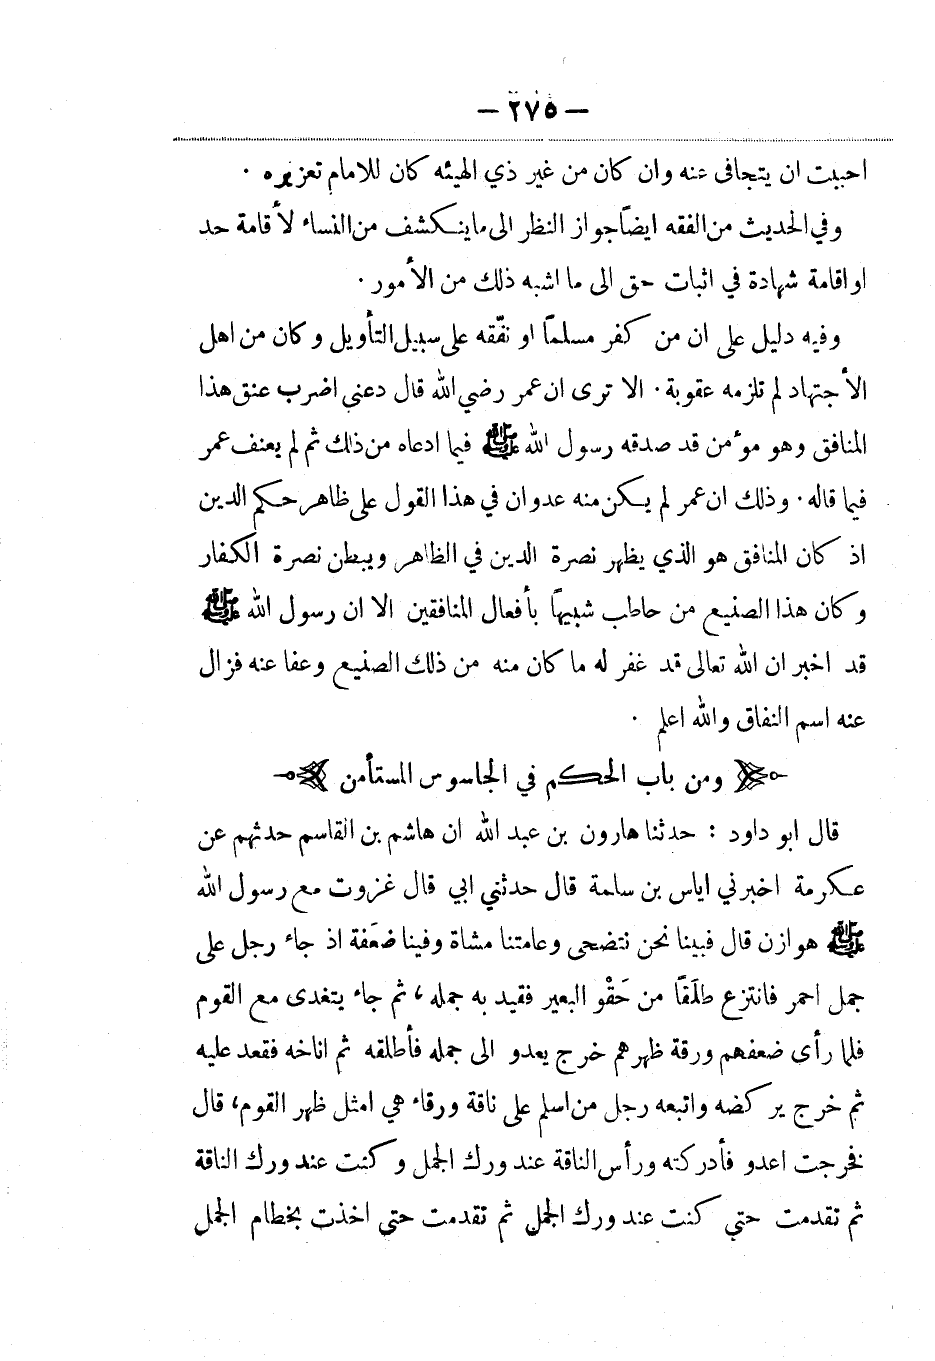 — ٢٧٥ —
احببت ان يتجافى عنه وان كان من غير ذي الهيئه كان للامام تعزيره ٠
وفي الحديث من الفقه ايضاً جواز النظر الى ما ينكشف من النساء لأقامة حد
او اقامة شهادة في اثبات حق الى ما اشبه ذلك من الأمور ٠
وفيه دليل على ان من كفر مسلماً او نفّقه على سبيل التأويل وكان من اهل
الأجتهاد لم تلزمه عقوبة ٠ الا ترى ان عمر رضي الله قال دعني اضرب عنق هذا
المنافق وهو مؤمن قد صدقه رسول الله ﷺ فيما ادعاه من ذلك ثم لم يعنف عمر
فيما قاله ٠ وذلك ان عمر لم يكن منه عدوان في هذا القول على ظاهر حكم الدين
اذ كان المنافق هو الذي يظهر نصرة الدين في الظاهر ويبطن نصرة الكفار
وكان هذا الصنيع من حاطب شبيهاً بأفعال المنافقين الا ان رسول الله ﷺ
قد اخبر ان الله تعالى قد غفر له ما كان منه من ذلك الصنيع وعفا عنه فزال
عنه اسم النفاق والله اعلم ٠
ومن باب الحكم في الجاسوس المستأمن
قال ابو داود : حدثنا هارون بن عبد الله ان هاشم بن القاسم حدثهم عن
عكرمة اخبرني اياس بن سلمة قال حدثني ابي قال غزوت مع رسول الله
ﷺ هوازن قال فبينا نحن نتضحى وعامتنا مشاة وفينا ضَعَفة اذ جاء رجل على
جمل احمر فانتزع طلَقاً من حَقْو البعير فقيد به جمله، ثم جاء يتغدى مع القوم
فلما رأى ضعفهم ورقة ظهرهم خرج يعدو الى جمله فأطلقه ثم اناخه فقعد عليه
ثم خرج يركضه واتبعه رجل من اسلم على ناقة ورقاء هي امثل ظهر القوم، قال
فخرجت اعدو فأدركته ورأس الناقة عند ورك الجمل وكنت عند ورك الناقة
ثم تقدمت حتى كنت عند ورك الجمل ثم تقدمت حتى اخذت بخطام الجمل